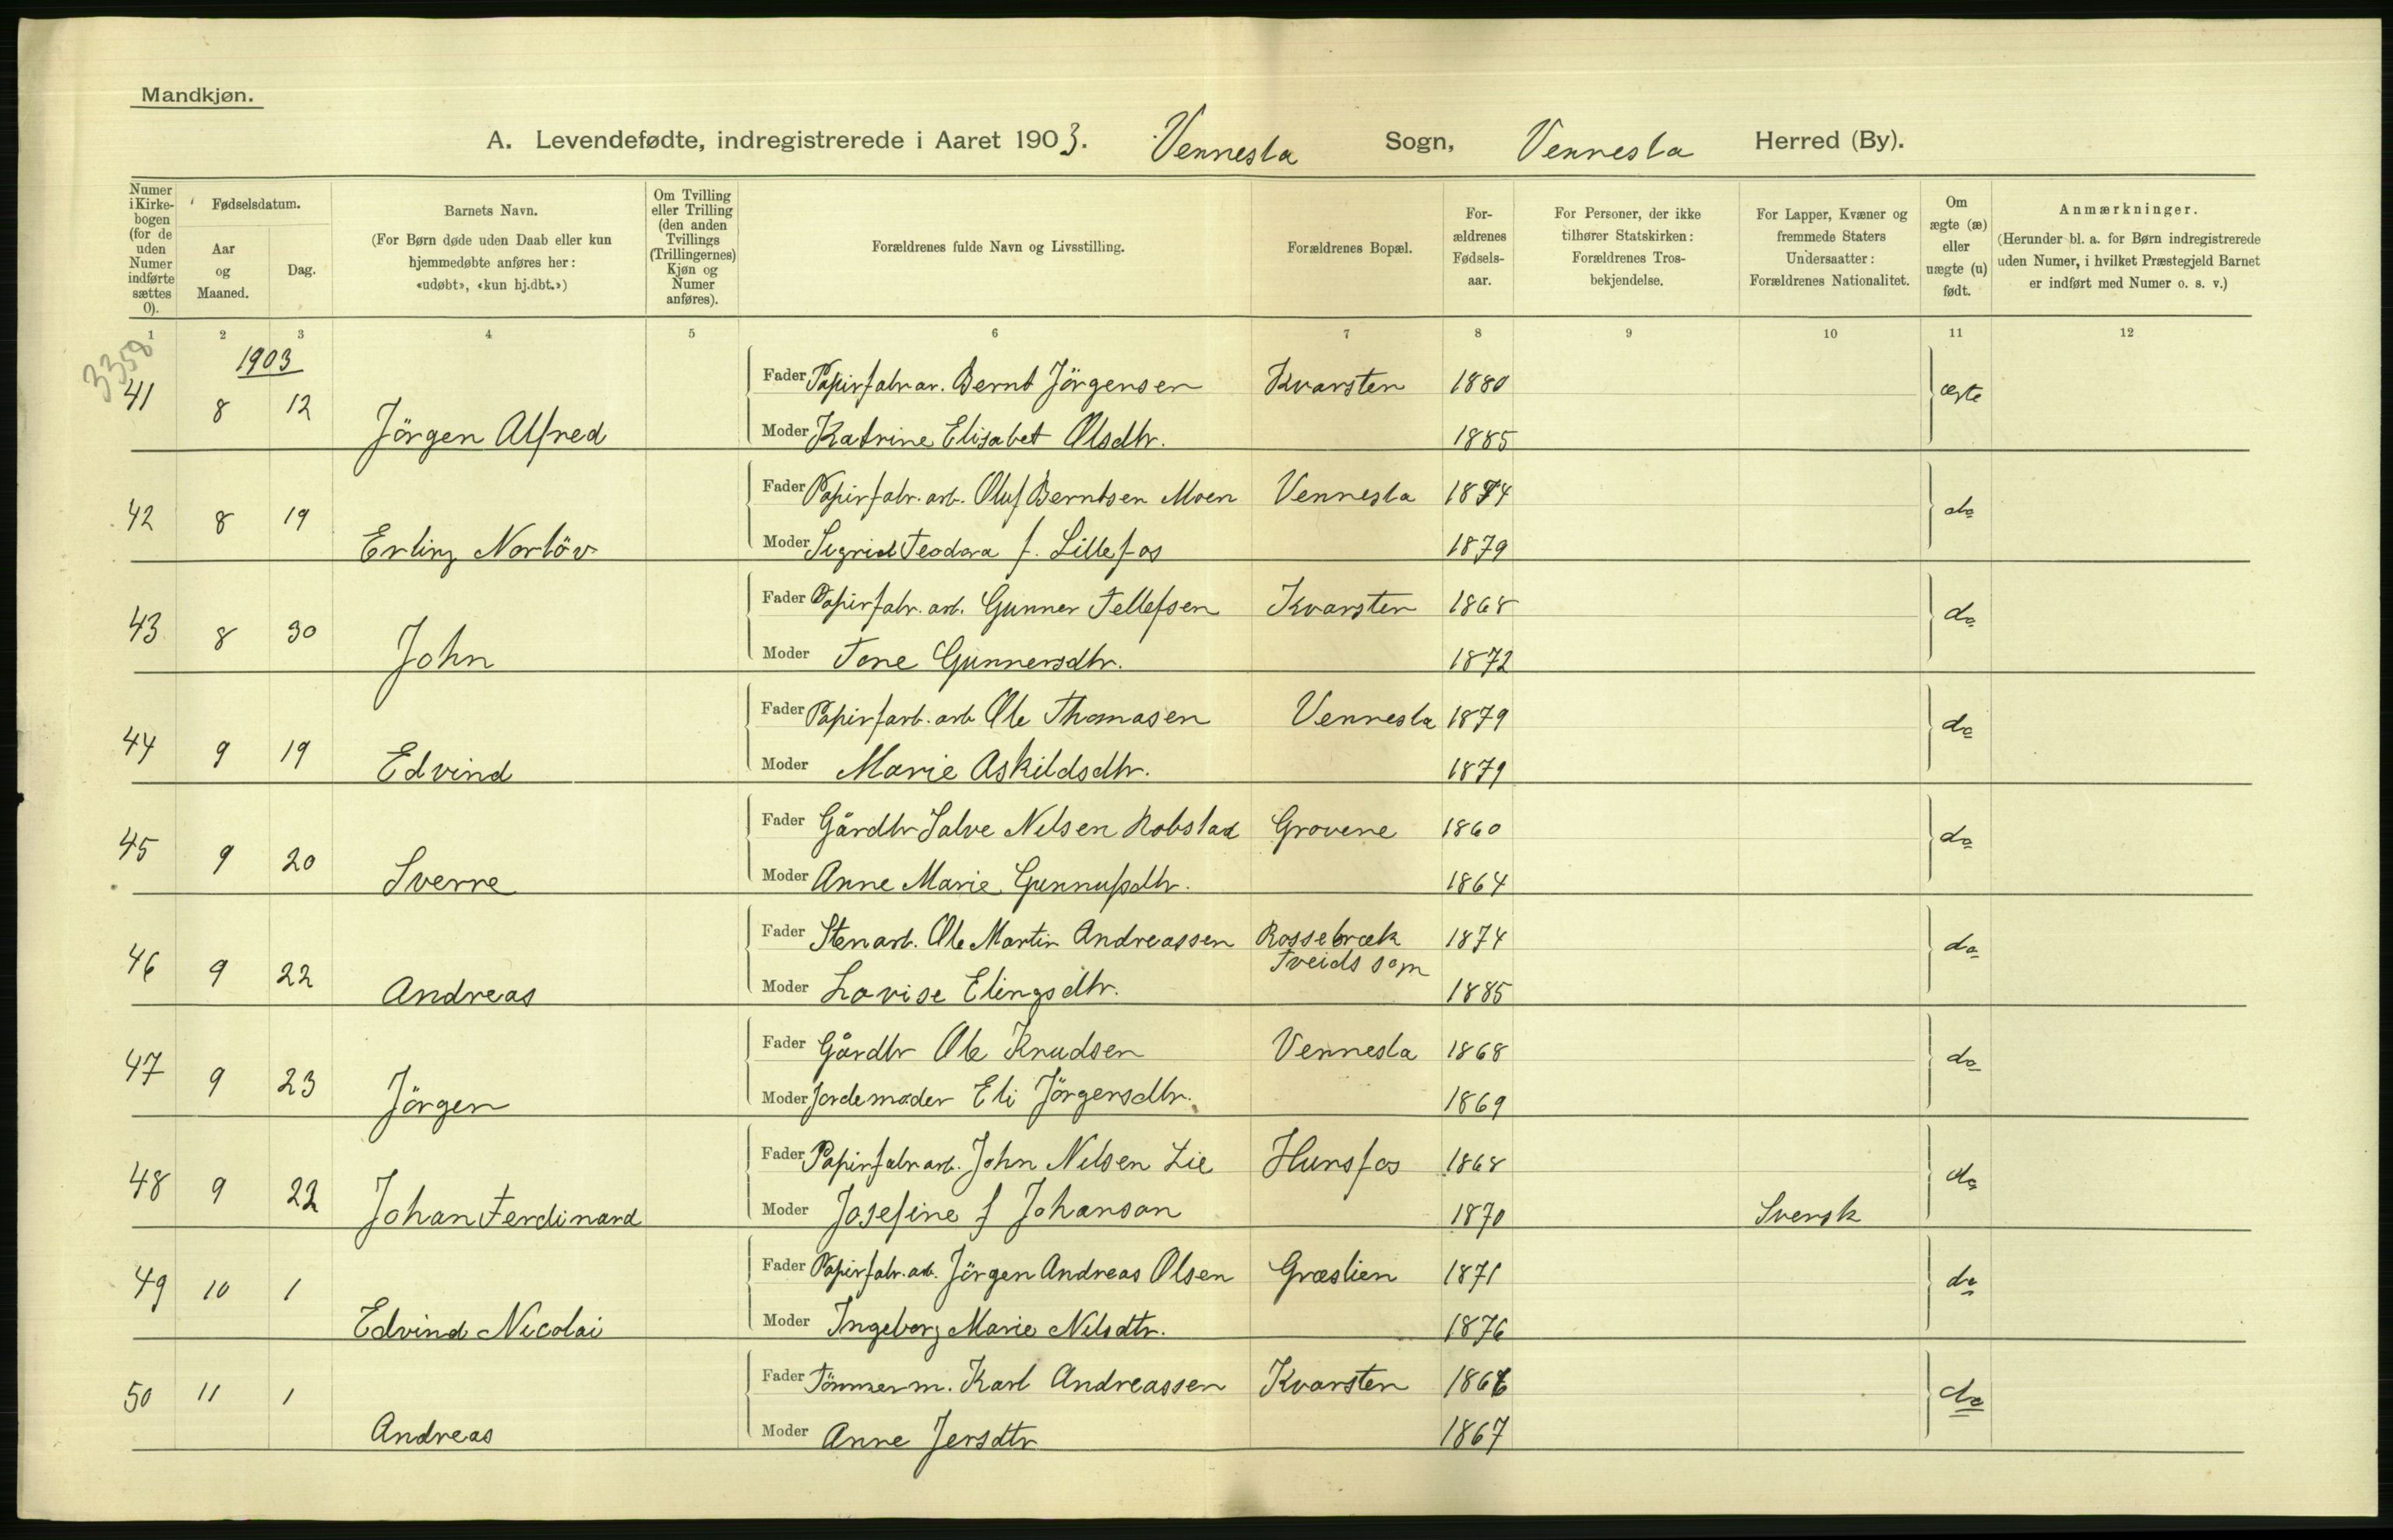 Mandkjøn.
A. Levendefødte, indregistrerede i Aaret 1903. Vennesla Sogn, Vennesla Herred (By).
Numer i Kirkebogen (for de uden Numer indførte sættes 0).
Fødselsdatum.
Aar og Maaned.
Dag.
Barnets Navn.
(For Børn døde uden Daab eller kun hjemmedøbte anføres her: «udøbt», «kun hj.dbt.»)
Om Tvilling eller Trilling (den anden Tvillings (Trillingernes) Kjøn og Numer anføres).
Forældrenes fulde Navn og Livsstilling.
Forældrenes Bopæl.
Forældrenes Fødselsaar.
For Personer, der ikke tilhører Statskirken: Forældrenes Trosbekjendelse.
For Lapper, Kvæner og fremmede Staters Undersaatter: Forældrenes Nationalitet.
Om ægte (æ) eller uægte (u) født.
Anmærkninger.
(Herunder bl. a. for Børn indregistrerede uden Numer, i hvilket Præstegjeld Barnet er indført med Numer o. s. v.)
1 2 3 4 5 6 7 8 9 10 11 12
3358
1903
41 8 12 Jörgen Alfred
Fader Papirfabrar. Bernt Jörgensen Kvarsten 1880 ægte
Moder Katrine Elisabet Olsdtr. 1885
42 8 19 Erling Norlöv
Fader Papirfabr. arb. Oluf Berntsen Moen Vennesla 1874 do
Moder Sigrid Teodora f. Lillefos 1879
43 8 30 John
Fader Papirfabr. arb. Gunner Tellefsen Kvarsten 1868 do
Moder Tone Gunnersdtr. 1872
44 9 19 Edvind
Fader Papirfarb. arb Ole Thomasen Vennesla 1879 do
Moder Marie Askildsdtr. 1879
45 9 20 Sverre
Fader Gårdbr Salve Nilsen Robstad Grovene 1860 do
Moder Anne Marie Gunnufsdtr. 1864
46 9 22 Andreas
Fader Stenarb. Ole Martin Andreassen Rossebræk Tveids sogn 1874 do
Moder Lovise Elingsdtr. 1885
47 9 23 Jörgen
Fader Gårdbr Ole Knudsen Vennesla 1868 do
Moder Jordemoder Eli Jörgensdtr. 1869
48 9 22 Johan Ferdinand
Fader Papirfabr arb. John Nilsen Lie Hunsfos 1868 do
Moder Josefine f Johanson 1870 Svensk
49 10 1 Edvind Nicolai
Fader Papirfabr. arb. Jörgen Andreas Olsen Græslien 1871 do
Moder Ingeborg Marie Nilsdtr. 1876
50 11 1 Andreas
Fader Tömmerm. Karl Andreassen Kvarsten 1866 do
Moder Anne Jensdtr 1867